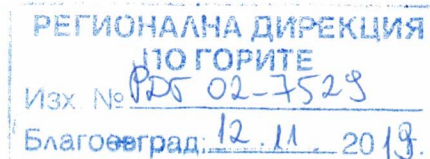 РЕГИОНАЛНА ДИРЕКЦИЯ
ПО ГОРИТЕ
Изх. № РДГ 02-7529
Благоевград, 12.11. 2019.